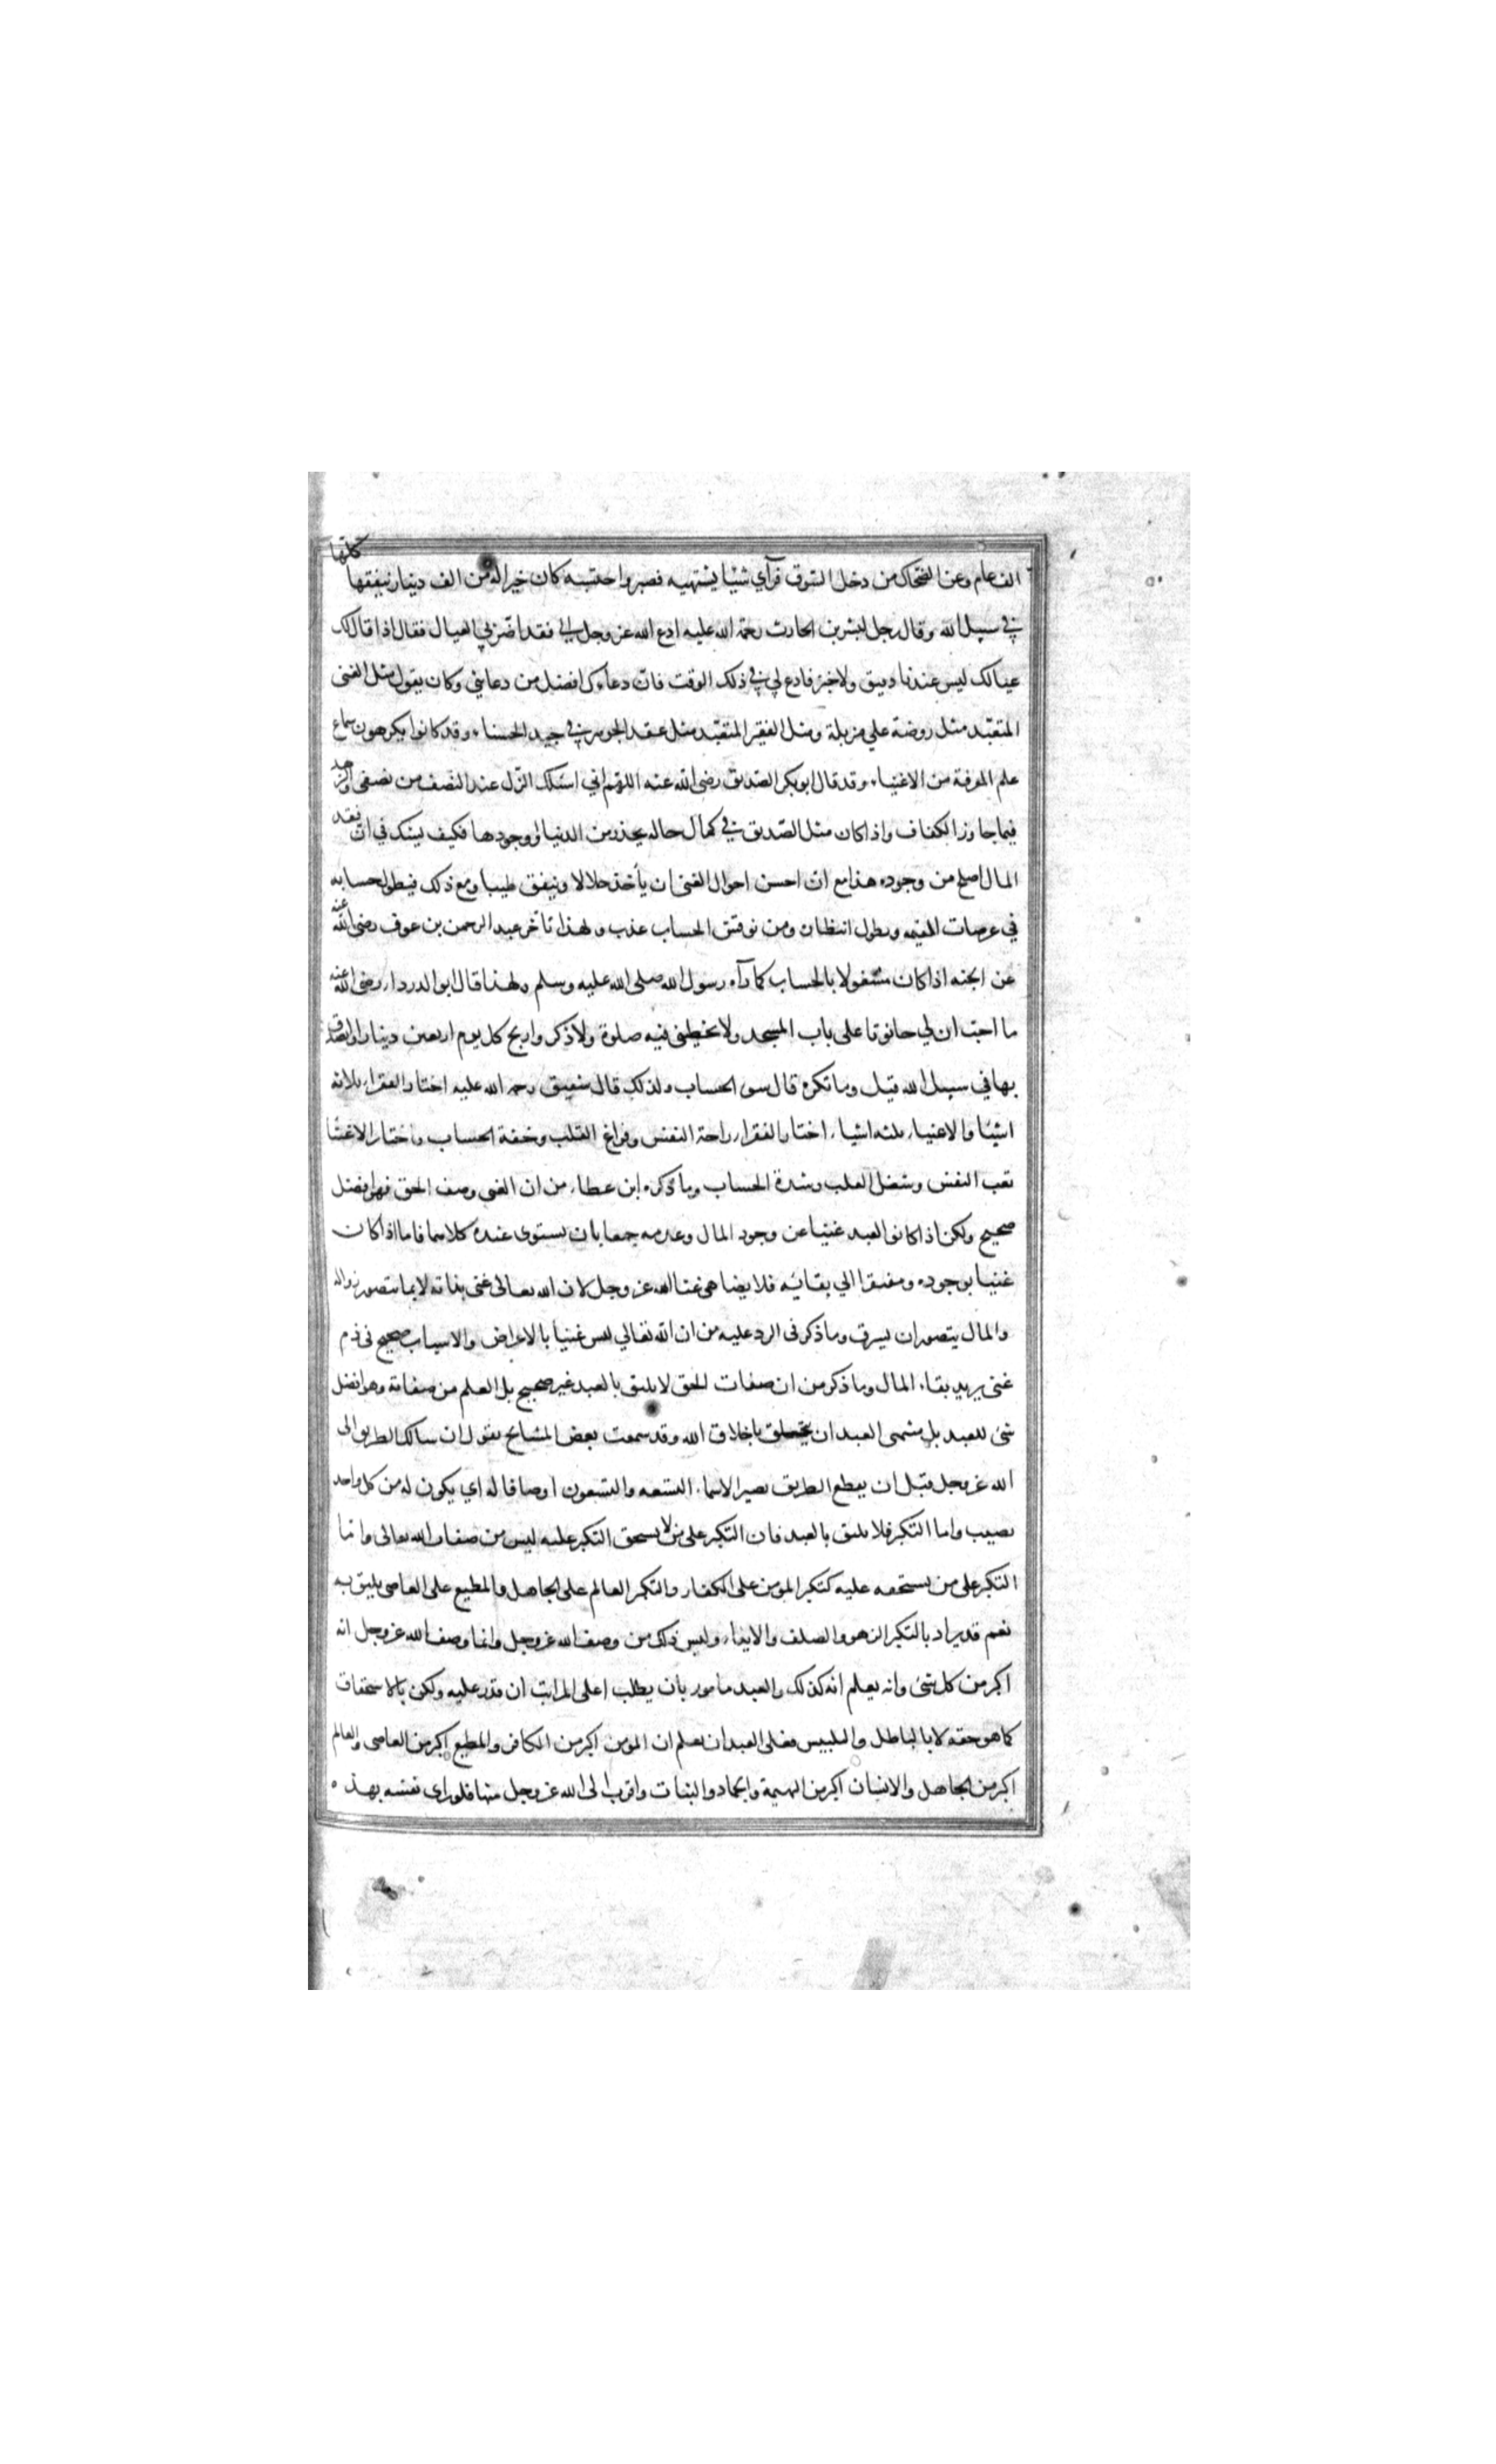 الف عام وعن الضحاك من دخل السّوق فرآي شيئا يشتهيه فصبر واحتسبه كان خيرا له من الف دينار ينفقها كلّها
في سبيل الله وقال رجل لبشر بن الحارث رحمة الله عليه ادع الله عز وجل لي فقد اضّر بي العيال فقال اذا قال لك
عيالك ليس عندنا دقيق ولا خبز فادع لي في ذلك الوقت فان دعاءك افضل من دعائي وكان يقول مثل الغني
المتعبّد مثل روضة علي مزبلة ومثل الفقير المتعبّد مثل عقد الجوهر في جيد الحسناء وقد كانوا يكرهون سماع
علم المعرفة من الاغنياء وقد قال ابو بكر الصّديق رضى الله عنه اللهم اني اسئلك الذّل عند النصف من نفسى والزهد
فيما جاوز الكفاف واذا كان مثل الصّديق في كمال حاله يحذر من الدنيا ووجودها فكيف يشك في ان فقد
المال اصلح من وجوده هذا مع ان احسن احوال الغنى ان يأخذ حلالا وينفق طيبا ومع ذلك فيطول حسابه
في عرصات القيمه ويطول انتظاره ومن نوقش الحساب عذب ولهذا تأخر عبد الرحمن بن عوف رضى الله عنه
عن الجنه اذا كان مشغولا بالحساب كما رآه رسول الله صلى الله عليه وسلم ولهذا قال ابو الدرداء رضى الله عنه
ما احبّ ان لي حانوتا على باب المسجد ولا تخطينى فيه صلوة ولا ذكر واربح كل يوم اربعين دينارا واتصدق
بها في سبيل الله قيل وما تكره قال سوء الحساب ولذلك قال شقيق رحمه الله عليه اختار الفقراء ثلاثة
اشيئا والاغنياء ثلثه اشياء اختار الفقراء راحة النفس وفراغ القلب وخفة الحساب واختار الاغنيا
تعب النفس وشغل القلب وشدة الحساب وما ذكره ابن عطاء من ان الغنى وصف الحق فهو افضل
صحيح ولكن اذا كان العبد غنيا عن وجود المال وعدمه جميعا بان يستوى عنده كلاهما فاما اذا كان
غنيا بوجوده ومفتقرا الي بقائه فلا يضاهى غناه غنا الله عز وجل لان الله تعالى غنى بذاته لا بما يتصور زواله
والمال يتصور ان يسرق وما ذكر فى الرد عليه من ان الله تعالي ليس غنيا بالاعراض والاسباب صحيح فى ذم
غنى يريد بقاء المال وما ذكر من ان صفات الحق لا يليق بالعبد غير صحيح بل العلم من صفاته وهو افضل
شئ للعبد بل منتهى العبد ان يتخلق باخلاق الله وقد سمعت بعض المشايخ يقول ان سالك الطريق الى
الله عز وجل قبل ان يقطع الطريق يصير الاسماء التسعه والتسعون اوصافا له اي يكون له من كل واحد
نصيب واما التكبر فلا يليق بالعبد فان التكبر على من لا يستحق التكبر عليه ليس من صفات الله تعالى واما
التكبر على من يستحقه عليه كتكبر المؤمن على الكفار والتكبر العالم على الجاهل والمطيع على العاصى يليق به
نعم قد يراد بالتكبر الزهو والصلف والايذاء وليس ذلك من وصف الله عز وجل وانما وصف الله عز وجل انه
اكبر من كل شئ وانه يعلم انه كذلك والعبد مامور بان يطلب اعلى المراتب ان قدر عليه ولكن بالاستحقاق
كما هو حقه لا بالباطل والتلبيس فعلى العبد ان يعلم ان المومن اكبر من الكافر والمطيع اكبر من العاصى والعالم
اكبر من الجاهل والانسان اكبر من البهيمة والجماد والنبات واقرب الى الله عز وجل منها فلو راى نفسه بهذه